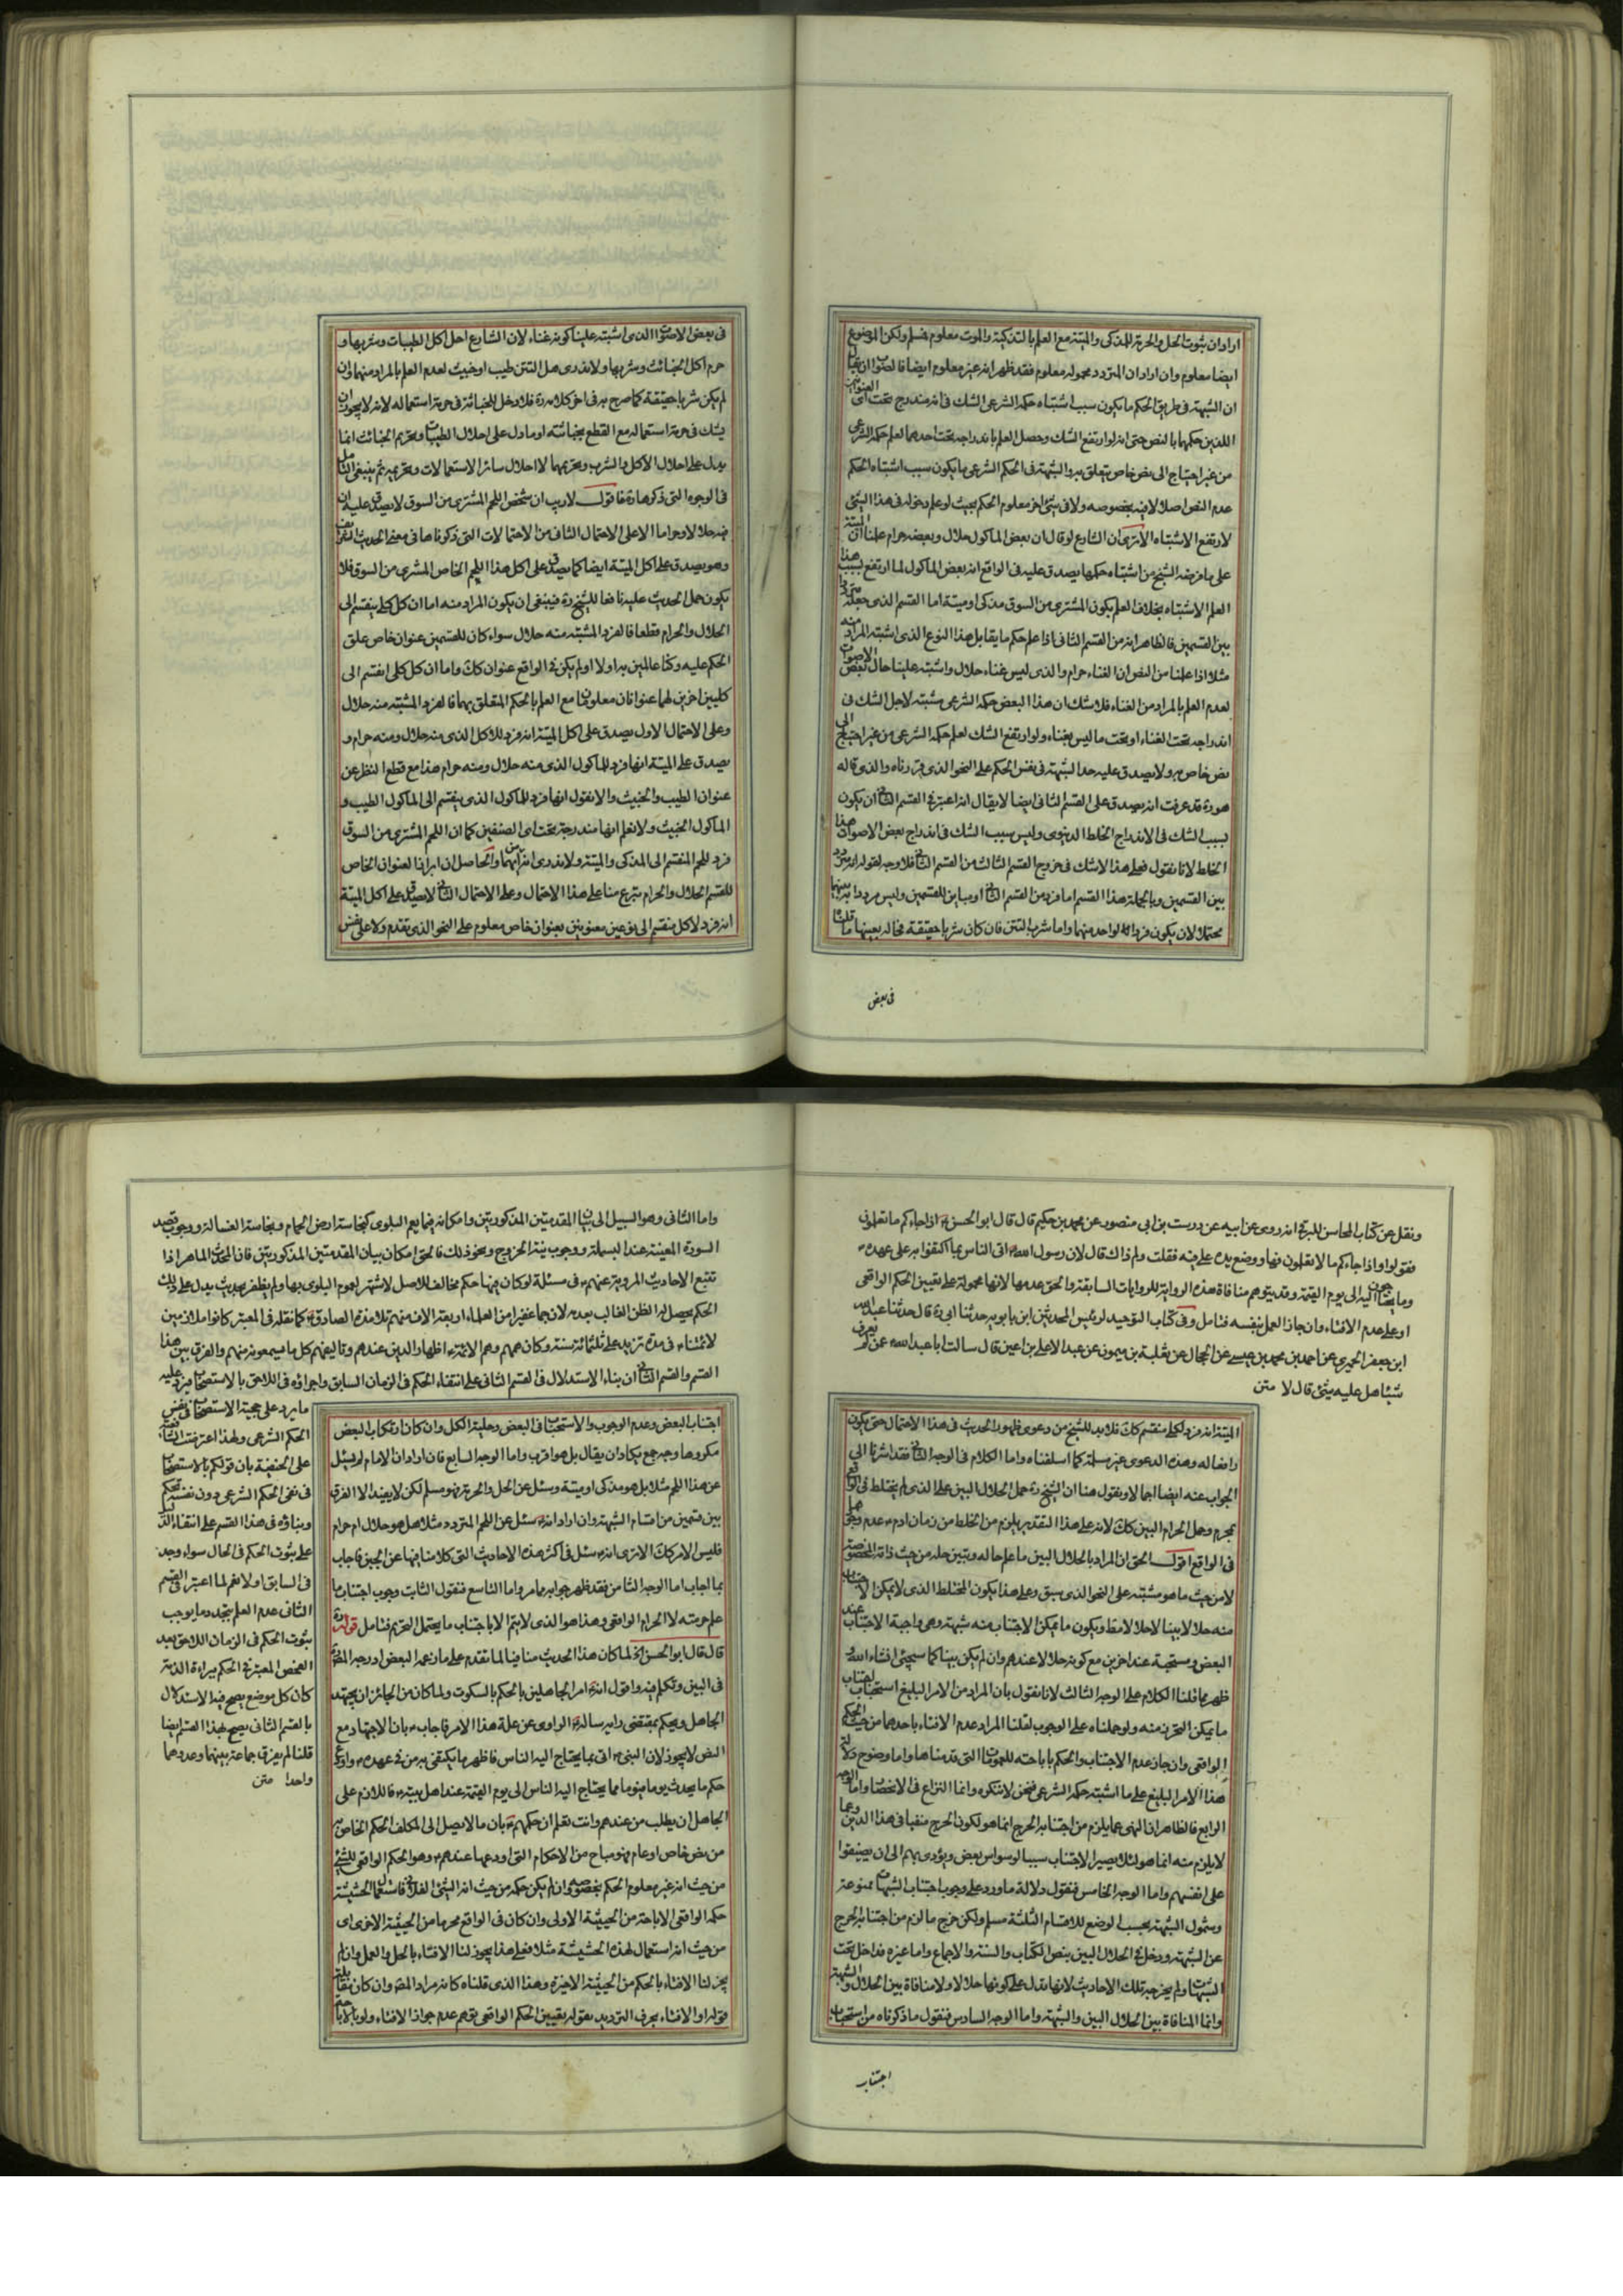 اراد ان ثبوت الحل والحرمة للمذكى والميتة مع العلم بالتذكية والموت معلوم فمسلم ولكن الموضوع
ايضا معلوم وان اراد ان المتردد محموله معلوم فقد ظهر انه غير معلوم ايضا فالصواب ان يقال
ان الشبهة فى طريق الحكم ما يكون سبب اشتباه حكمه الشرعى الشك فى انه مندرج تحت اى العنوانين
اللذين حكمهما بالنص حتى انه لو ارتفع الشك وحصل العلم باندراجه تحت احدهما لعلم حكمه الشرعى
من غير احتياج الى نص خاص يتعلق به والشبهة فى الحكم الشرعى ما يكون سبب اشتباه الحكم
عدم النص اصلا لا فيه بخصوصه ولا فى شئ اخر معلوم الحكم بحيث لو علم دخوله فى هذا الشئ
لارتفع الاشتباه الا ترى ان الشارع لو قال ان بعض الماكول حلال وبعضه حرام علمنا ان الميتة
على ما فرضه الشيخ من اشتباه حكمها يصدق عليه فى الواقع انه بعض الماكول لما ارتفع بسبب هذا
العلم الاشتباه بخلاف العلم بكون المشترى من السوق مذكى او ميتة اما القسم الذى جعله مترددا
بين القسمين فالظاهر انه من القسم الثانى اذا علم حكم ما يقابل هذا النوع الذى اشتبه المراد منه
مثلا اذا علمنا من النص ان الغناء حرام والذى ليس غناء حلال واشتبه علينا حال بعض الاصوات
لعدم العلم بالمراد من الغناء فلا شك ان هذا البعض حكمه الشرعى مشتبه لاجل الشك فى
اندراجه تحت الغناء او تحت ما ليس بغناء ولو ارتفع الشك لعلم حكمه الشرعى من غير احتياج الى
نص خاص به ولا يصدق عليه حد الشبهة فى نفس الحكم على النحو الذى قررناه والذى قاله
هو ره قد عرفت انه يصدق على القسم الثانى ايضا لا يقال انه اعتبر فى القسم الثانى ان يكون
سبب الشك فى الاندراج الخلط الدنيوى وليس سبب الشك فى اندراج بعض الاصوات هذا
الخلط لانا نقول فعلى هذا لا شك فى خروج القسم الثالث من القسم الثانى فلا وجه لقوله انه متردد
بين القسمين وبالجملة هذا القسم اما فرد من القسم الثانى او مباين للقسمين وليس مرددا بينهما
محتملا لان يكون فردا لواحد منهما واما شرب التتن فان كان شربا حقيقة فحاله بعينها ما قلنا
فى بعض
فى بعض الاصوات الذى اشتبه علينا كونه غناء لان الشارع احل اكل الطيبات وشربها و
حرم اكل الخبائث وشربها ولا ندرى هل التتن طيب او خبيث لعدم العلم بالمراد منهما وان
لم يكن شربا حقيقة كما صرح به فى اخر كلامه ره فلا دخل للخبائثة فى حرمة استعماله لانه لا يجوز ان
يشك فى حرمة استعماله مع القطع بخباثته اذ ما دل على احلال الطيبات وتحريم الخبائث انما
يدل على احلال الاكل والشرب وتحريمهما لا احلال سائر الاستعمالات وتحريمه ثم ينبغى التامل
فى الوجوه التى ذكرها ره فاقول لا ريب ان شخص اللحم المشترى من السوق لا يصدق عليه ان
فيه حلالا وحراما الا على الاحتمال الثانى من الاحتمالات التى ذكرناها فى معنى الحديث
وهو يصدق على اكل الميتة ايضا كما يصدق على اكل هذا اللحم الخاص المشترى من السوق فلا
يكون حمل الحديث عليه نافعا للشيخ ره فينبغى ان يكون المراد منه اما ان كل كلى ينقسم الى
الحلال والحرام قطعا فالفرد المشتبه منه حلال سواء كان للقسمين عنوان خاص علق
الحكم عليه وكنا عالمين به او لا او لم يكن فى الواقع عنوان كك واما ان كل كلى انقسم الى
كليين اخرين لهما عنوانان معلومان مع العلم بالحكم المتعلق بهما فالفرد المشتبه منه حلال
وعلى الاحتمال الاول يصدق على اكل الميتة انه فرد للاكل الذى منه حلال ومنه حرام و
يصدق على الميتة انها فرد للماكول الذى منه حلال ومنه حرام هذا مع قطع النظر عن
عنوان الطيب والخبيث والا نقول انها فرد للماكول الذى ينقسم الى الماكول الطيب و
الماكول الخبيث ولا نعلم انها مندرجة تحت اى الصنفين كما ان اللحم المشترى من السوق
فرد للحم المنقسم الى المذكى والميتة ولا ندرى انه من ايهما والحاصل ان ابراز العنوان الخاص
للقسم الحلال والحرام تبرع منا على هذا الاحتمال وعلى الاحتمال الثانى لا يصدق على اكل الميتة
انه فرد لاكل منقسم الى نوعين معنونين بعنوان خاص معلوم على النحو الذى تقدم ولا على نفس
ونقل عن كتاب المحاسن للبرقى انه روى عن ابيه عن درست بن ابى منصور عن محمد بن حكيم قال قال ابو الحسن ع اذا جاءكم ما تعلمون
فقولوا واذا جاءكم ما لا تعلمون فها ووضع يده على فيه فقلت ولم ذاك قال لان رسول الله ص اتى الناس بما اكتفوا به على عهده
وما يحتاجون اليه الى يوم القيمة وقد يتوهم منافاة هذه الرواية للروايات السابقة والحق عدمها لانها محمولة على تعيين الحكم الواقعى
او على عدم الافتاء وان جاز العمل بنفسه فتامل وفى كتاب التوحيد لرئيس المحدثين ابن بابويه حدثنا ابى ره قال حدثنا عبد الله
ابن جعفر الحميرى عن احمد بن محمد بن عيسى عن الحجال عن ثعلبة بن ميمون عن عبد الاعلى بن اعين قال سالت ابا عبد الله ع عن من لم يعرف
شيئا هل عليه شئ قال لا متن
الميتة انه فرد لكلى منقسم كك فلا بد للشيخ من دعوى ظهور الحديث فى هذا الاحتمال حتى يكون
دافعا له وهذه الدعوى غير مسلمة كما اسلفناه واما الكلام فى الوجه الثانى فقد اشرنا الى
الجواب عنه ايضا اجمالا ونقول هنا ان الشيخ ره حمل الحلال البين على الذى لم يختلط فى الواقع
بمحرم وحمل الحرام البين كك لانه على هذا التقدير يلزم من الخلط من زمان ادم ع عدم وجودهما
فى الواقع اقول الحق ان المراد بالحلال البين ما علم حاله وتبين حله من حيث ذاته المخصوصة
لا من حيث ما هو مشتبه على النحو الذى سبق وعلى هذا يكون المختلط الذى لا يمكن الاجتناب
منه حلالا بينا لا حلالا فقط ويكون ما يمكن الاجتناب منه شبهة وهى واجبة الاجتناب عند
البعض ومستحبة عند اخرين مع كونه حلالا عندهم وان لم يكن بينا كما سيجئ انشاء الله و
ظهر مما قلنا الكلام على الوجه الثالث لانا نقول بان المراد من الامر البليغ استحباب اجتناب
ما يمكن التحرز منه ولو حملناه على الوجوب لقلنا المراد عدم الافتاء باحدهما من حيث الحكم
الواقعى وان جاز عدم الاجتناب والحكم باباحته للعمومات التى قدمناها واما وضوح دلالة
هذا الامر البليغ على ما اشتبه حكمه الشرعى فنحن لا ننكره وانما النزاع فى الانحصار واما الوجه
الرابع فالظاهر ان النهى عما يلزم من اجتنابه الحرج انما هو لكون الحرج منفيا فى هذا الدين وعما
لا يلزم منه انما هو لئلا يصير الاجتناب سببا لوسواس بعض ويؤدى بهم الى ان يضيقوا
على انفسهم واما الوجه الخامس فنقول دلالة ما ورد على وجوب اجتناب الشبهات ممنوعة
وشمول الشبهة بحسب الوضع للاقسام الثلثة مسلم ولكن خرج ما لزم من اجتنابه الحرج
عن الشبهة ودخل فى الحلال البين بنص الكتاب والسنة والاجماع واما غيره فداخل تحت
الشبهات ولم يخرجه تلك الاحاديث لانها تدل على كونها حلالا ولا منافاة بين الحلال والشبهة
وانما المنافاة بين الحلال البين والشبهة واما الوجه السادس فنقول ما ذكرناه من استحباب
اجتناب
واما الثانى وهو السبيل الى بيان المقدمتين المذكورتين وامكانه فيما يعم البلوى كنجاسة ارض الحمام ونجاسة الغسالة ووجوب قصد
السورة المعينة عند البسملة ووجوب نية الخروج ونحو ذلك فالحق امكان بيان المقدمتين المذكورتين فان المحدث الماهر اذا
تتبع الاحاديث المروية عنهم ع فى مسئلة لو كان فيها حكم مخالف للاصل لاشتهر لعموم البلوى بها ولم يظفر بحديث يدل على ذلك
الحكم يحصل له الظن الغالب بعدمه لان جما غفيرا من العلماء اربعة الاف منهم تلامذة الصادق ع كما نقله فى المعتبر كانوا ملازمين
لائمتنا ع فى مدة تزيد على ثلثمائة سنة وكان همهم وهم الائمة ع اظهار الدين عندهم وتاليفهم كل ما يسمعونه منهم والفرق بين هذا
القسم والقسم الثانى ان بناء الاستدلال فى القسم الثانى على انتفاء الحكم فى الزمان السابق واجراؤه فى اللاحق بالاستصحاب فيرد عليه
ما يرد على حجية الاستصحاب فى نفس
الحكم الشرعى ولهذا اعترضت الشافعية
على الحنفية بان قولكم بالاستصحاب
فى نفى الحكم الشرعى دون نفسه تحكم
وبناؤه فى هذا القسم على انتفاء الدليل
على ثبوت الحكم فى الحال سواء وجد
فى السابق او لا نعم لما اعتبر فى القسم
الثانى عدم العلم بتجدد ما يوجب
ثبوت الحكم فى الزمان اللاحق بعد
الفحص المعتبر فى الحكم ببراءة الذمة
كان كل موضع يصح فيه الاستدلال
بالقسم الثانى يصح بهذا القسم ايضا
فلذا لم يفرق جماعة بينهما وعدوهما
واحدا متن
اجتناب البعض وعدم الوجوب والاستحباب فى البعض وحلية الكل وان كان ارتكاب البعض
مكروها وجه جمع يكاد ان يقال بل هو اقرب واما الوجه السابع فان اراد ان الامام لو سئل
عن هذا اللحم مثلا بل هو مذكى او ميتة وسئل عن الحل والحرمة فهو مسلم لكن لا يفيد الا الفرق
بين قسمين من اقسام الشبهة وان اراد انه ع سئل عن اللحم المتردد مثلا هل هو حلال ام حرام
فليس الامر كك الا ترى انه ع سئل فى اكثر هذه الاحاديث التى كلامنا فيها عن الجبن فاجاب
بما اجاب اما الوجه الثامن فقد ظهر جوابه مما مر واما التاسع فنقول الثابت وجوب اجتناب ما
علم حرمته لا الحرام الواقعى وهذا هو الذى لا يتم الا باجتناب ما يحتمل التحريم فتامل قوله ره
قال قال ابو الحسن الخ لما كان هذا الحديث منافيا لما تقدم على ما زعمه البعض اورده المصنف
فى البين وتكلم فيه واقول انه ع امر الجاهلين بالحكم بالسكوت ولما كان من الجائز ان يجتهد
الجاهل ويحكم بمقتضى رايه ساله الراوى عن علة هذا الامر فاجاب ع بان الاجتهاد مع
النص لا يجوز لان النبى ص اتى بما يحتاج اليه الناس فاظهر ما يكتفى به من فى عهده ص واودع
حكم ما يحدث يوما فيوما مما يحتاج اليه الناس الى يوم القيمة عند اهل بيته ع فاللازم على
الجاهل ان يطلب من عندهم وانت تعلم ان حكمهم ع بان ما لا يصل الى المكلف الحكم الخاص به
من نص خاص او عام فهو مباح من الاحكام التى اودعها عندهم ع وهو الحكم الواقعى للشئ
من حيث انه غير معلوم الحكم بخصوصه وان لم يكن حكمه من حيث انه الشئ الفلانى فاستعمال الحشيشة
حكمه الواقعى الاباحة من الحيثية الاولى وان كان فى الواقع محرما من الحيثية الاخرى اى
من حيث انه استعمال لهذه الحشيشة مثلا فعلى هذا يجوز لنا الافتاء بالحل والعمل وان لم
يجز لنا الافتاء بالحكم من الحيثية الاخيرة وهذا الذى قلناه كانه مراد المصنف وان كان مقابلة
قوله او الافتاء بحرف الترديد بقوله بتعيين الحكم الواقعى توهم عدم جواز الافتاء ولو بالاباحة